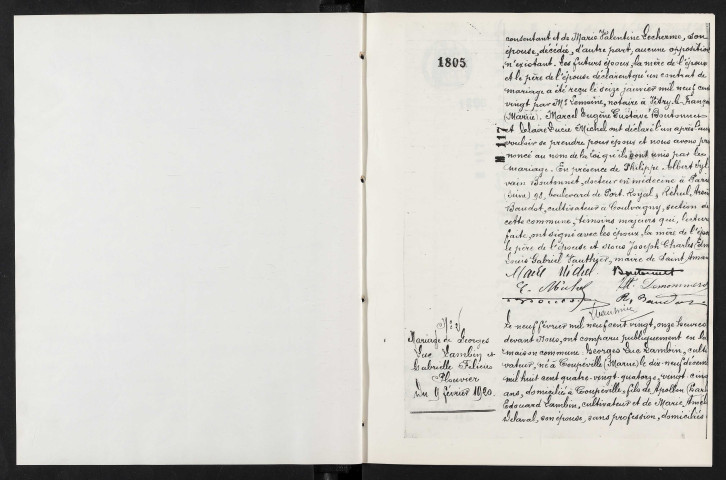 1805
consentant et de Marie Valentine Lecherme, son
épouse, décédée, d'autre part, aucune opposition
n'existant. Les futurs époux, la mère de l'époux
et le père de l'épouse déclarent qu'un contrat de
mariage a été reçu le seize janvier mil neuf cent
vingt par Me Lemoine, notaire à Vitry-le-François
(Marne). Marcel Eugène Gustave Boutonnet
et Claire Lucie Michel ont déclaré l'un après l'autre
vouloir se prendre pour époux et nous avons pro
noncé au nom de la loi qu'ils sont unis par le
mariage. En présence de Philippe Albert Syl
vain Boutonnet, docteur en médecine à Paris
(Seine) 98, boulevard de Port Royal,
Baudot, cultivateur à Coulvagny, section de
cette commune, témoins majeurs qui, lecture
faite, ont signé avec les époux, la mère de l'époux
le père de l'épouse et Nous Joseph Charles
Louis Gabriel Vauthier, maire de Saint Amand
M 117
Michel Boutonnet
Baudot
No 2
Mariage de Georges
Luc Lambin et
Gabrielle
Plouvier
Du 9 février 1920.
Le neuf février mil neuf cent vingt, onze heures
devant Nous, ont comparu publiquement en la
maison commune: Georges Luc Lambin, culti
vateur, né à Coupéville (Marne) le dix-neuf
mil huit cent quatre-vingt-quatorze, vingt cinq
ans, domicilié à Coupéville, fils de Apollon
Edouard Lambin, cultivateur et de Marie
Delaval, son épouse, sans profession, domiciliés